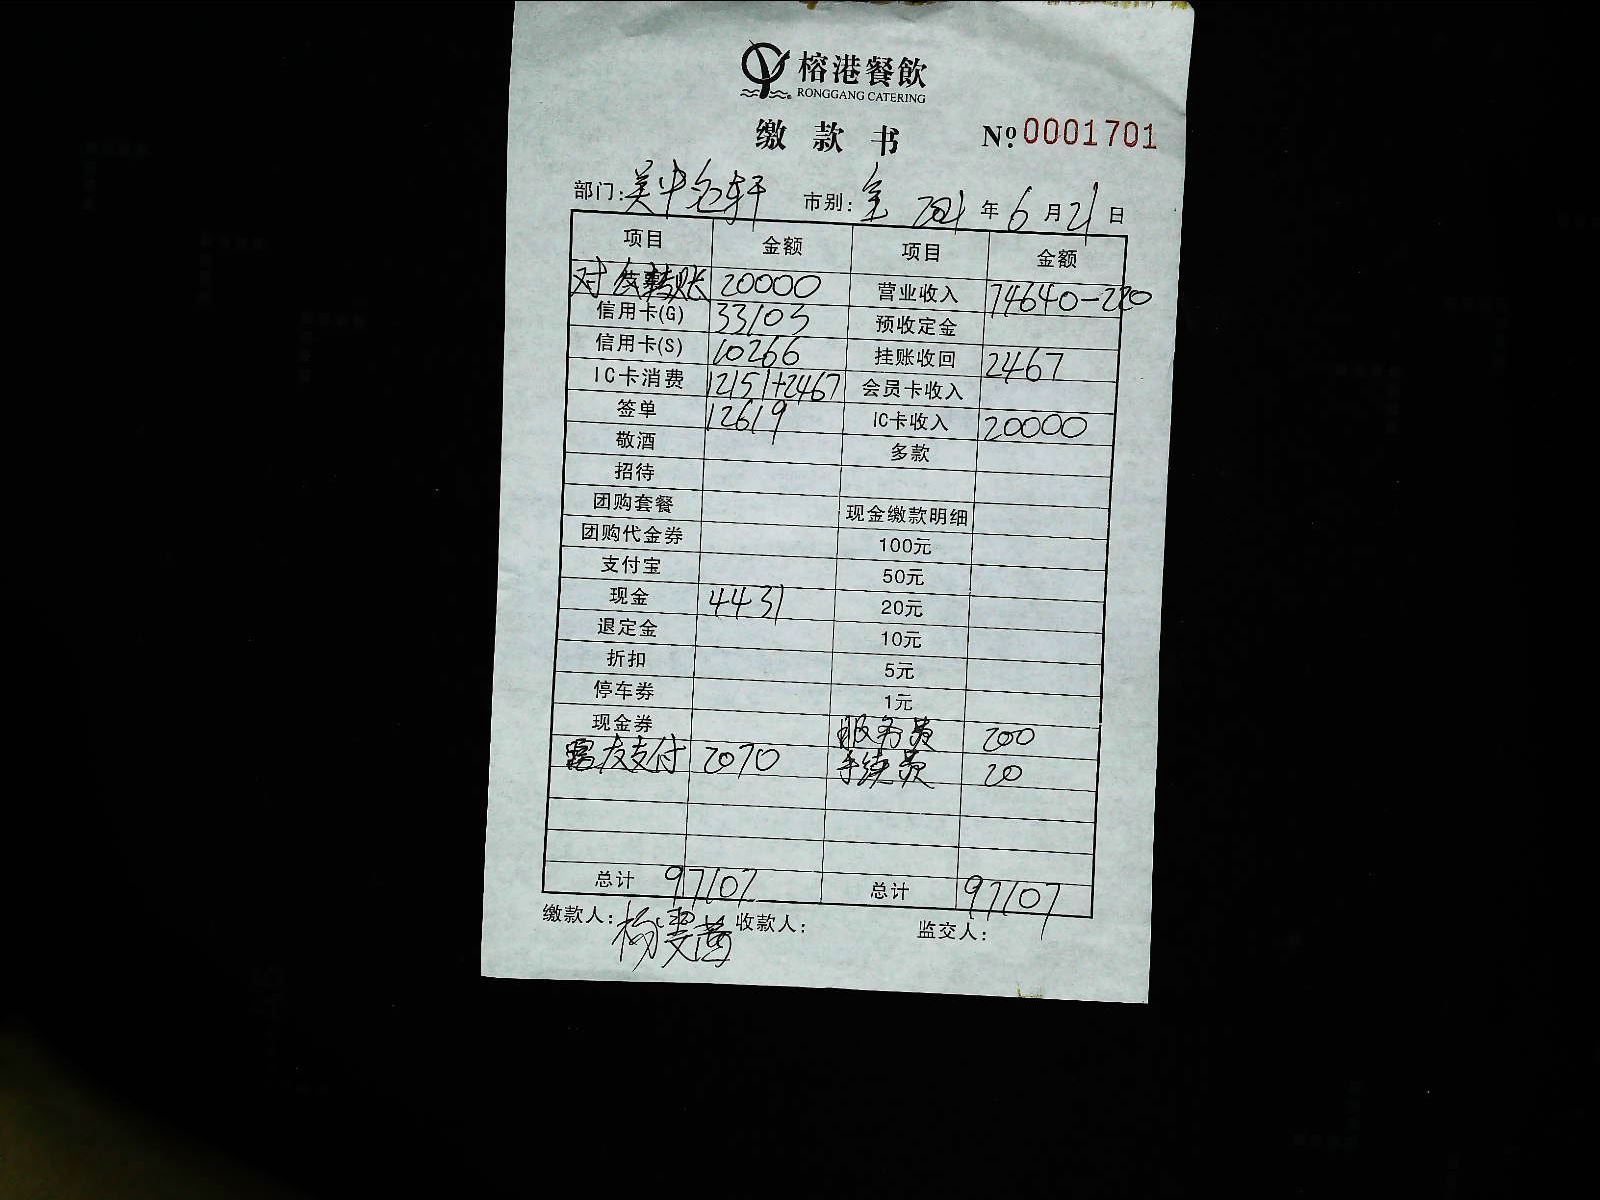 榕港餐飲
RONGGANG CATERING
缴款书 № 0001701
部门: 吴中名轩 市别: 全 2021 年 6 月 21 日
项目 金额 项目 金额
对公转账 20000 营业收入 74640-220
信用卡(G) 33103 预收定金
信用卡(S) 10266 挂账收回 2467
IC卡消费 12151+2467 会员卡收入
签单 12619 IC卡收入 20000
敬酒 多款
招待
团购套餐 现金缴款明细
团购代金券 100元
支付宝 50元
现金 4431 20元
退定金 10元
折扣 5元
停车券 1元
现金券 服务费 200
支付 2070 手续费 20
总计 97107 总计 97107
缴款人: 杨 收款人: 监交人: